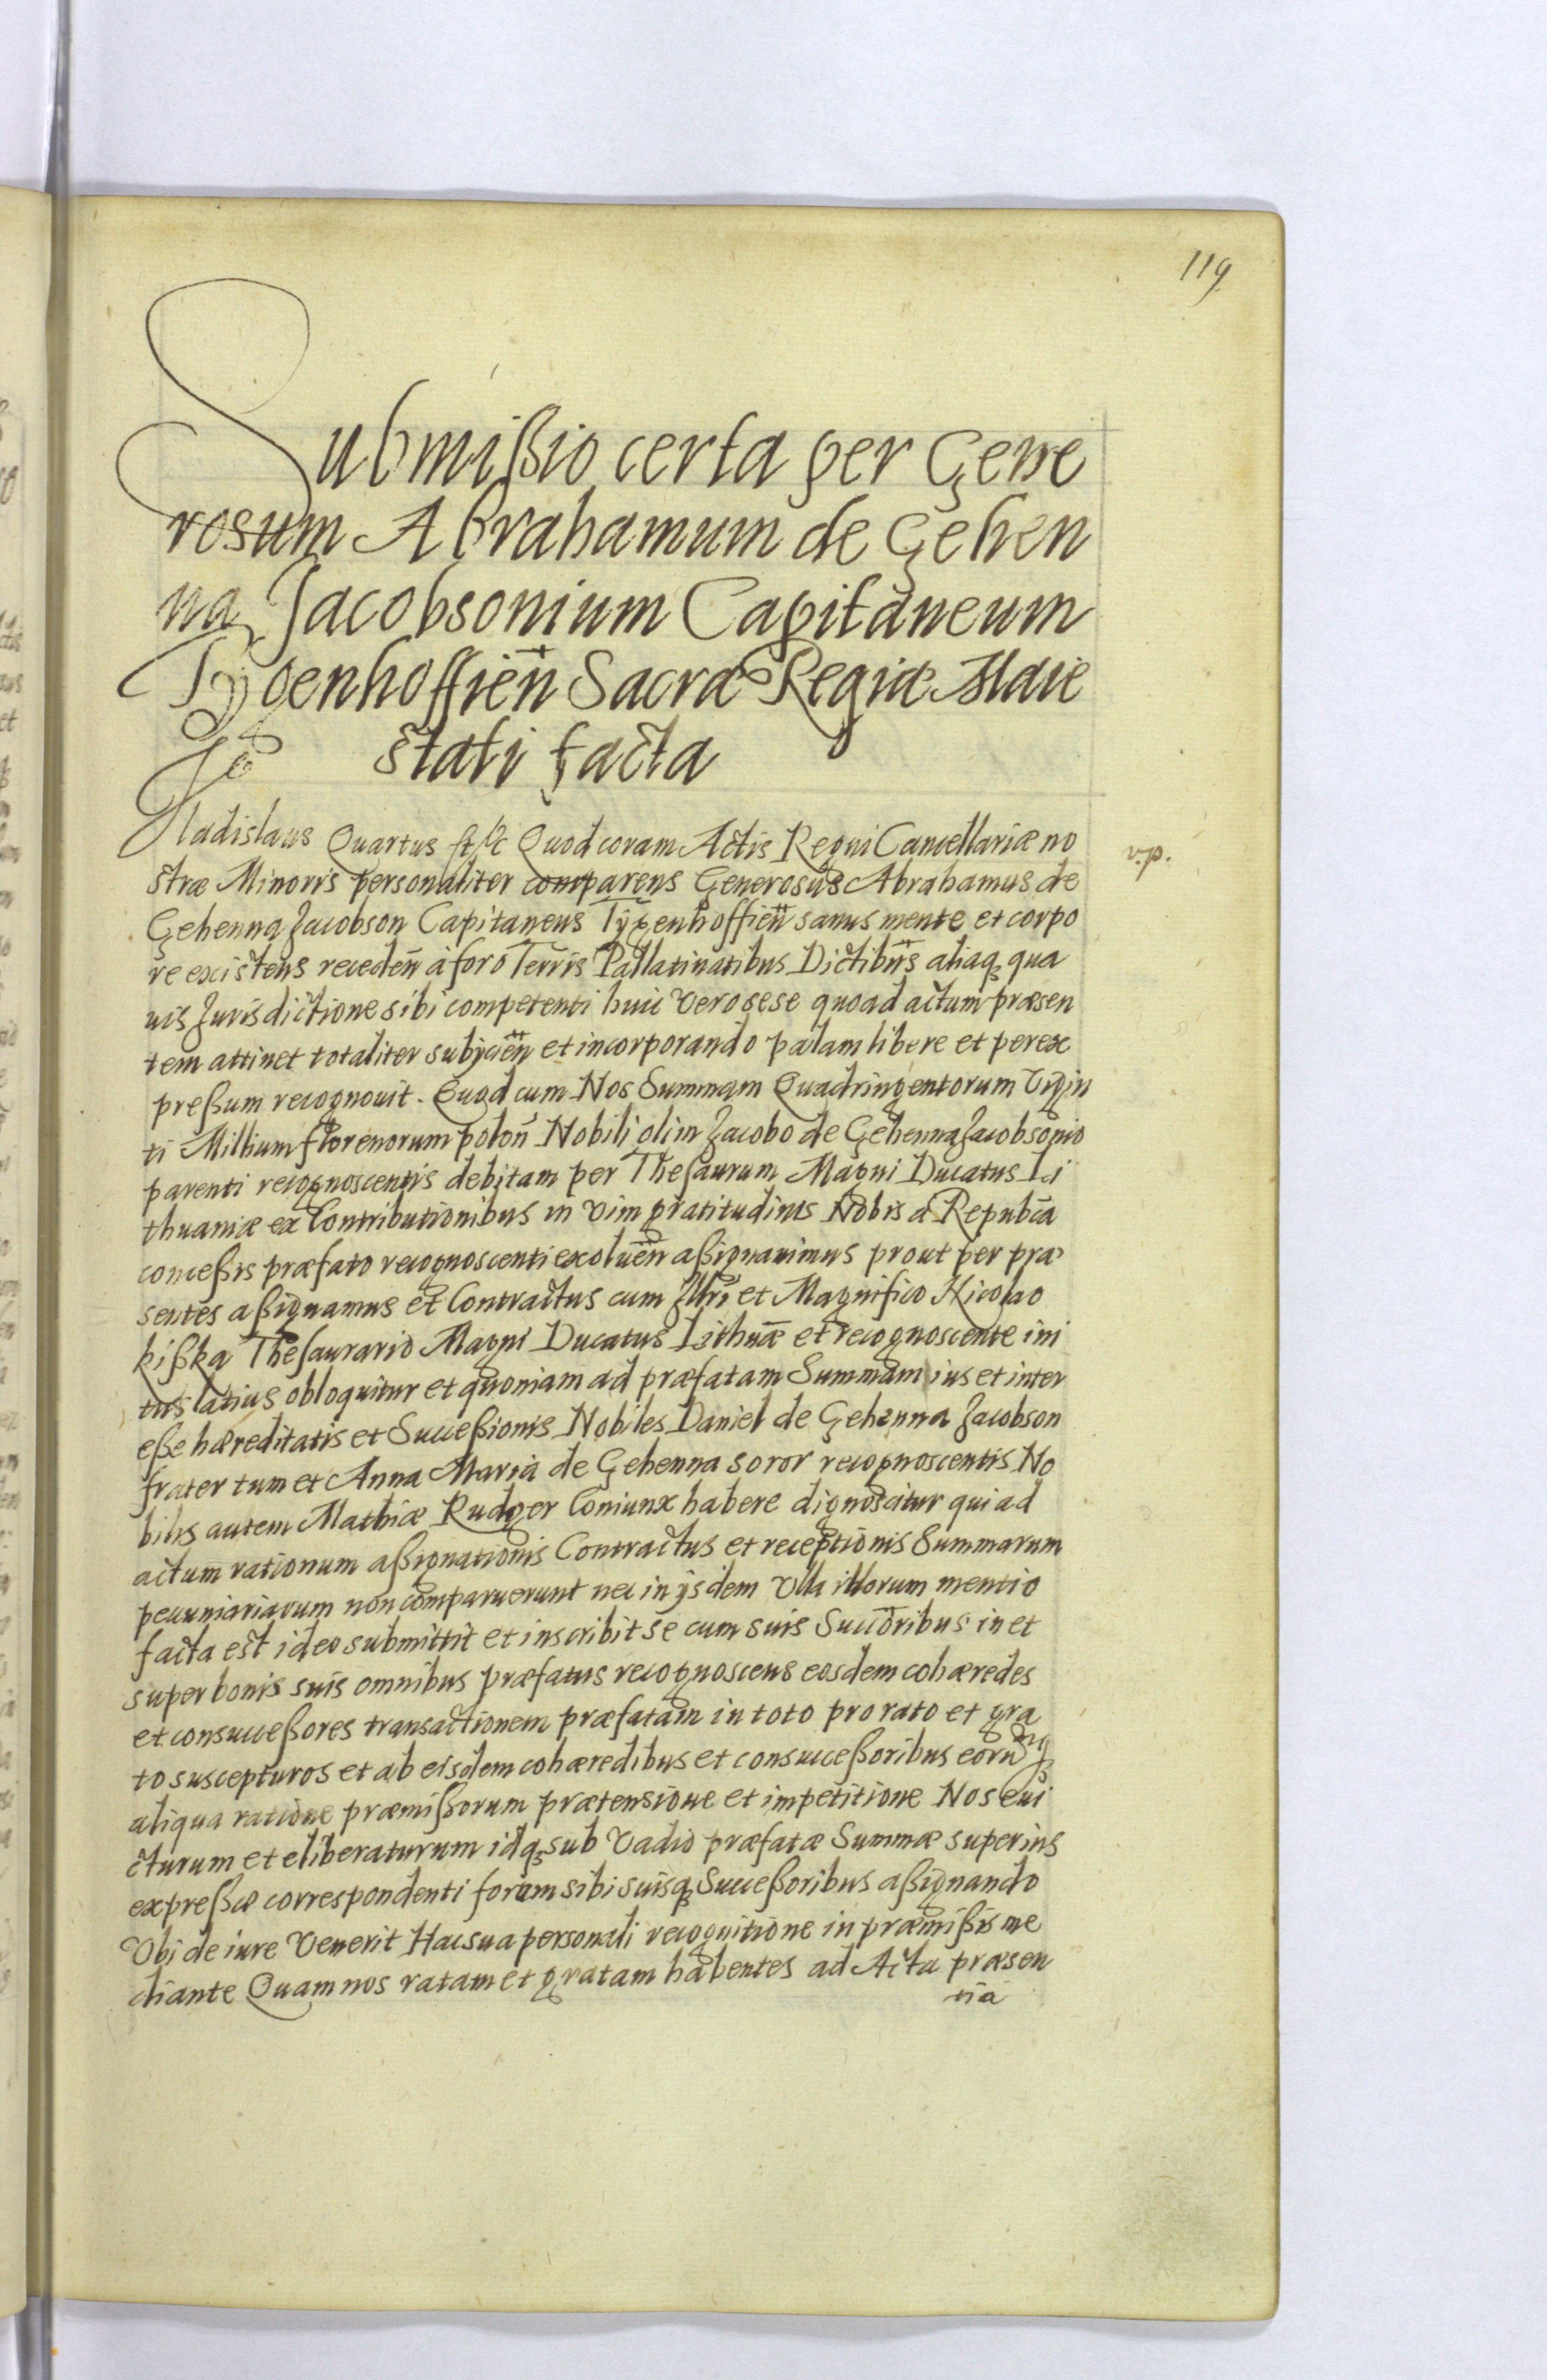 119
Submißio certa per Gene
rosum Abrahamum de Gehen
na Jacobsonium Capitaneum
Tygenhoffien̄ Sacræ Regiæ Maie
stati facta
Vladislaus Quartus &c Quod coram Actis Regni Cancellariæ no
v.p.
stræ Minoris personaliter comparens Generosus Abrahamus de
Gehenna Jacobson Capitaneus Tygenhoffien̄ sanus mente et corpo
re existens receden̄ à foro Terris Pallatinatibus Dictibus̄ aliaq, qua
uis Jurisdictione sibi competenti huic vero sese quoad actum præsen
tem attinet totaliter subijcien̄ et incorporando palam libere et perex
preßum recognouit. Quod cum Nos Summam Quadringentorum Vigin
ti Millium florenorum polon̄ Nobili olim Jacobo de Gehenna Jacobsonio
parenti recognoscentis debitam per Thesaurum Magni Ducatus Li
thuaniæ ex Contributionibus in vim gratitudinis Nobis a Repub̄ca
conceßis præfato recognoscenti exoluen̄ aßignauimus prout per præ
sentes aßignamus et Contractus cum Illrī et Magnifico Nicolao
kißka Thesaurario Magni Ducatus Lithuǣ et recognoscente ini
tus latius obloquitur et quoniam ad præfatam Summam ius et inter
eße hæreditatis et Succeßionis Nobiles Daniel de Gehenna Jacobson
frater tum et Anna Maria de Gehenna soror recognoscentis No
bilis autem Mathiæ Rudger Coniunx habere dignoscitur qui ad
actum rationum aßignationis Contractus et receptionis Summarum
pecuniariarum non comparuerunt nec in ijsdem Vlla illorum mentio
facta est ideo submittit et inscribit se cum suis Succoribus̄ in et
super bonis suis omnibus præfatus recognoscens eosdem cohæredes
et consucceßores transactionem præfatam in toto pro rato et gra
to suscepturos et ab eisdem cohæredibus et consucceßoribus eorū
aliqua ratione præmißorum prætensione et impetitione Nos eui
cturum et eliberaturum idq, sub Vadio præfatæ Summæ superius
expreßæ correspondenti forum sibi suisq, Succeßoribus aßignando
Vbi de iure Venerit Hac sua personali recognitione in præmißis me
diante Quam nos ratam et gratam habentes ad Acta præsen
tia